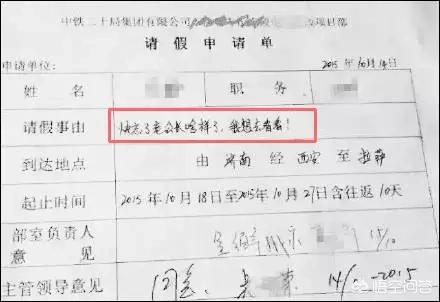 中铁二十局集团有限公司 改项目部
请假申请单
申请单位： 2015年10月14日
姓名 职务
请假事由 快忘了老公长啥样了，我想去看看！
到达地点 由 济南 经 西安 至 拉萨
起止时间 2015年10月18日至2015年10月27日含往返10天
部室负责人
意见 15/10
主管领导意见 同意 14/10-2015
悟空问答